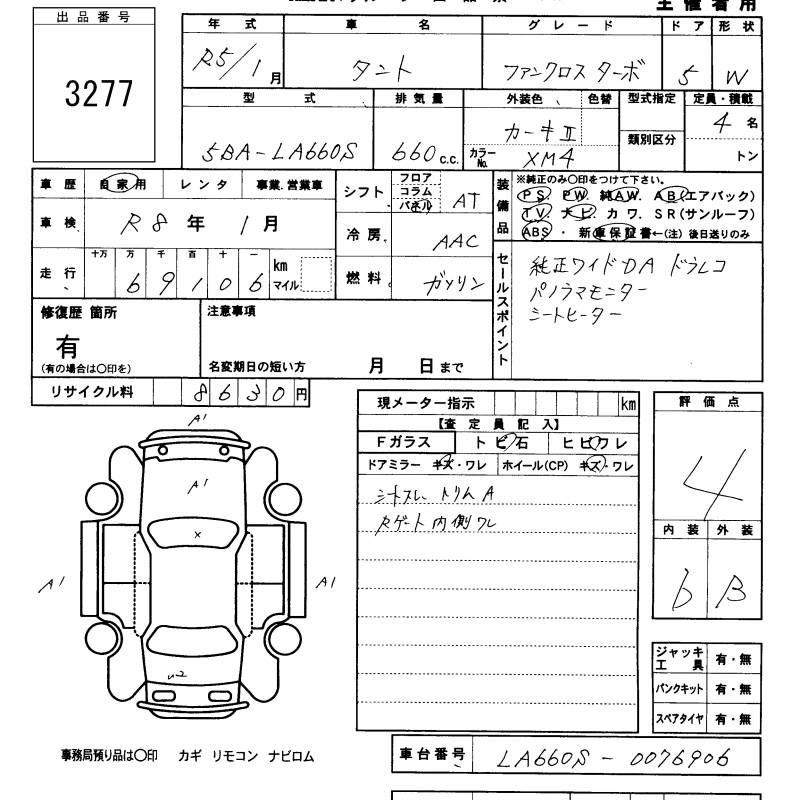 主催者用
出品番号
3277
年式 車名 グレード ドア 形状
R5/1月 タント ファンクロス ターボ 5 W
型式 排気量 外装色 色替 型式指定 定員・積載
5BA-LA660S 660 C.C. カーキⅡ 類別区分 4名
カラーNo. XM4 トン
車歴 自家用 レンタ 事業.営業車
車検 R8年 1月
走行 十万 万 千 百 十 一
69106 km マイル
シフト フロア コラム パネル AT
冷房 AAC
燃料 ガソリン
装備品
※純正のみ〇印をつけて下さい。
PS. PW. 純AW. AB(エアバック)
TV. ナビ. カワ. SR(サンルーフ)
ABS ・ 新車保証書←(注) 後日送りのみ
セールスポイント
純正ワイドDA ドラレコ
パノラマモニター
シートヒーター
修復歴 箇所
有
(有の場合は〇印を)
注意事項
名変期日の短い方 月 日まで
リサイクル料 8630円
現メーター指示 km
【査定員記入】
Fガラス トビ石 ヒビワレ
ドアミラー キズ・ワレ ホイール(CP) キズ・ワレ
シートスレ トリムA
Rゲート内側ワレ
評価点
4
内装 外装
b B
A1
A1
×
A1
A1
ジャッキ工具 有・無
パンクキット 有・無
スペアタイヤ 有・無
事務局預り品は〇印 カギ リモコン ナビロム
車台番号 LA660S-0076906